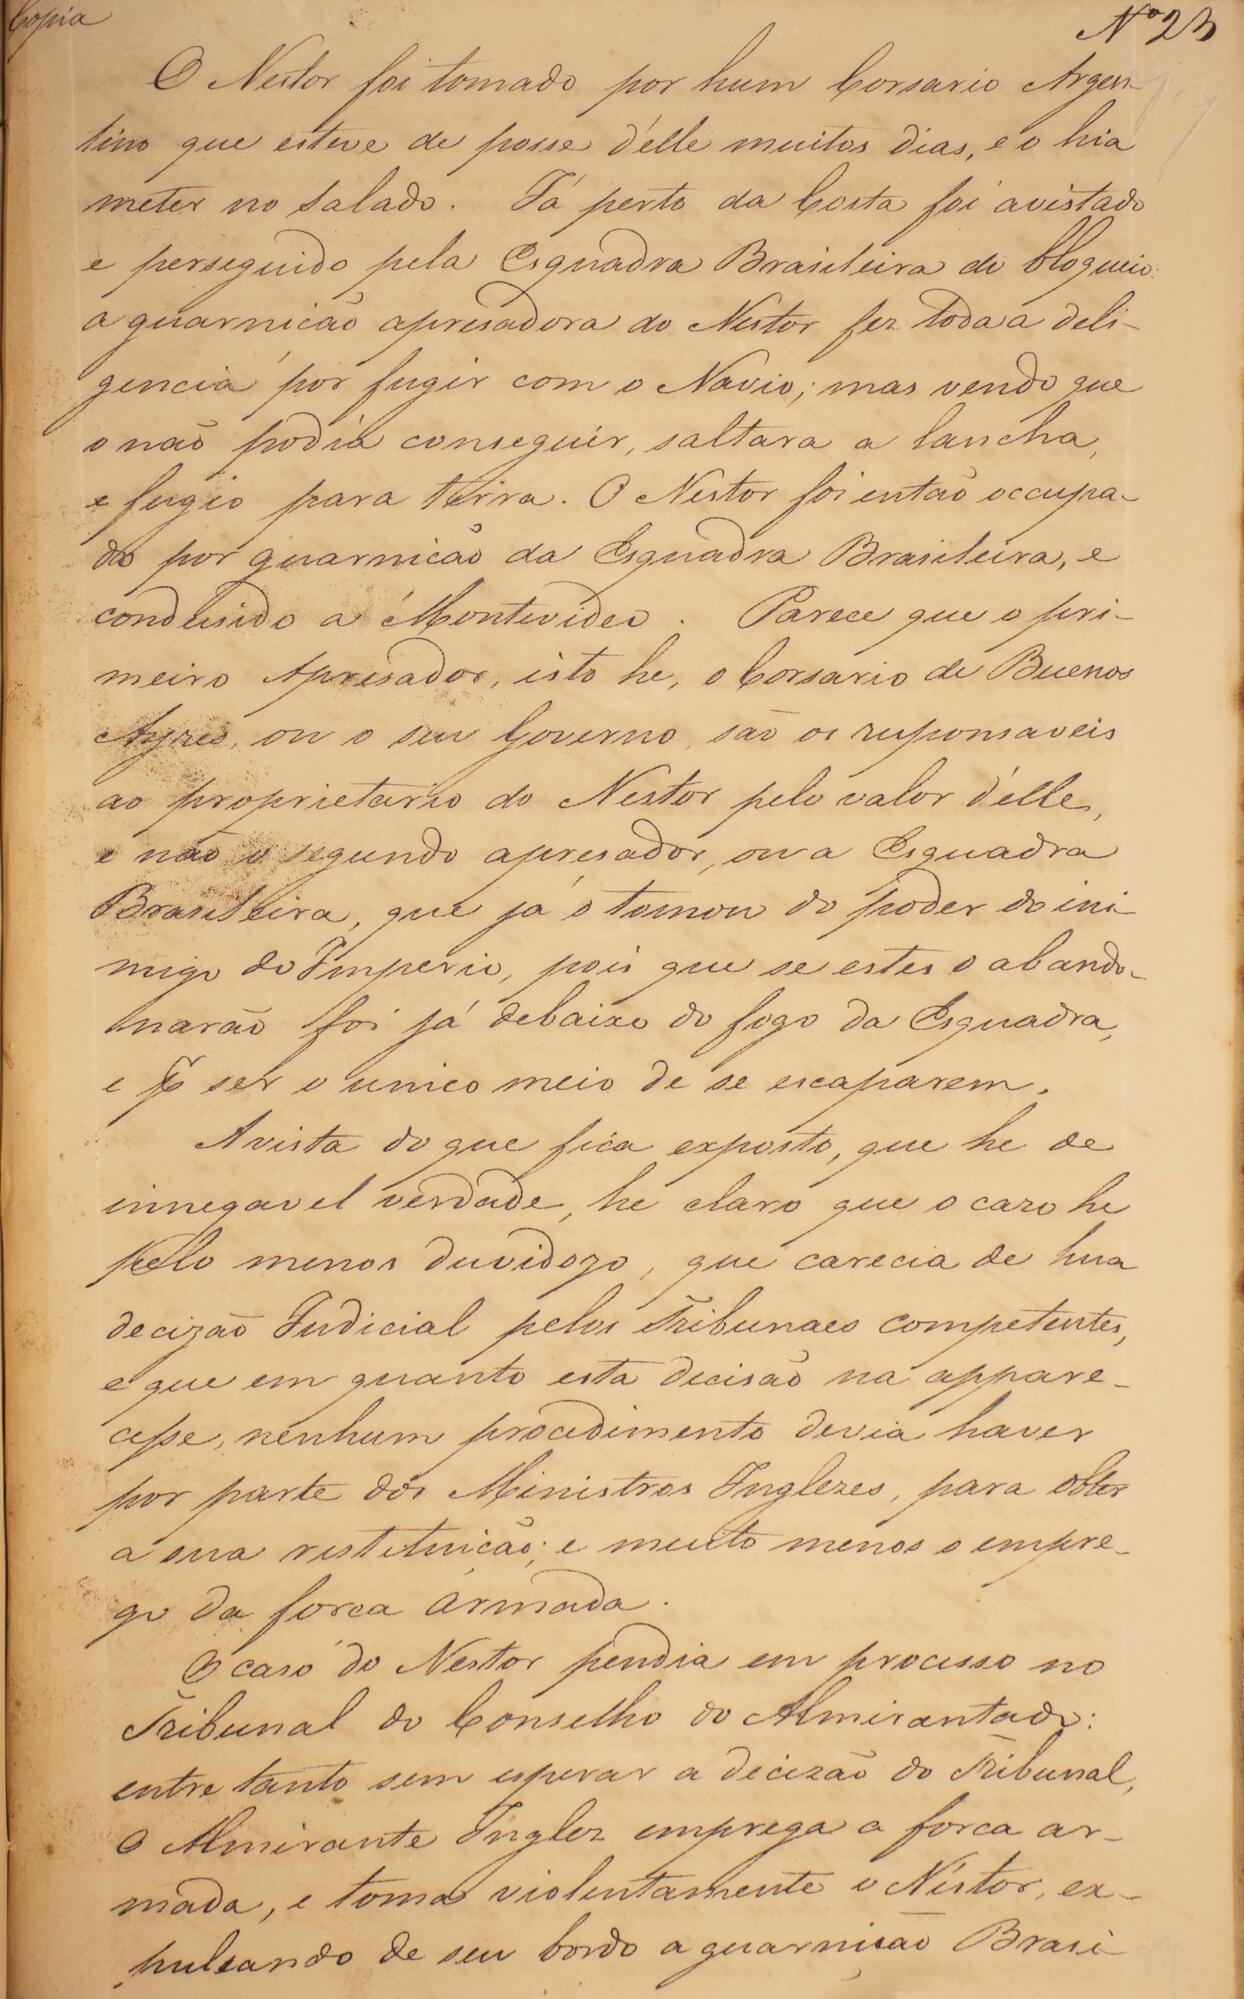 Copia
Nº 23
O Nestor foi tomado por hum Corsario Argen-
tino que esteve de posse d'elle muitos dias, e o hia
meter no Salado. Já perto da Costa foi avistado
e perseguido pela Esquadra Brasileira de bloqueio:
a guarnição apresadora do Nestor fez toda a deli-
gencia por fugir com o Navio; mas vendo que
o não podia conseguir, saltara a lancha,
e fugio para terra. O Nestor foi então occupa-
do por guarnicão da Esquadra Brasileira, e
condusido a Montevideo. Parece que o pri-
meiro Apresador, isto he, o Corsario de Buenos
Ayres, ou o seu Governo, são os responsaveis
ao proprietario do Nestor pelo valor d'elle,
e não o segundo apresador, ou a Esquadra
Brasileira, que já o tomou do poder do ini-
migo do Imperio, pois que se estes o abando-
narão foi já debaixo do fogo da Esquadra,
e p ser o unico meio de se escaparem.
A vista do que fica exposto, que he de
innegavel verdade, he claro que o cazo he
pelo menos duvidozo, que carecia de hua
decizão Judicial pelos Tribunaes competentes,
e que em quanto esta decisão na appare-
cesse, nenhum procedimento devia haver
por parte dos Ministros Inglezes, para obter
a sua restituicão; e muito menos o empre-
go da forca armada.
O caso do Nestor pendia em processo no
Tribunal do Conselho do Almirantado:
entre tanto sem esperar a decizão do Tribunal,
O Almirante Inglez emprega a forca ar-
mada, e toma violentamente o Nestor, ex-
pulsando de seu bordo a guarnição Brasi